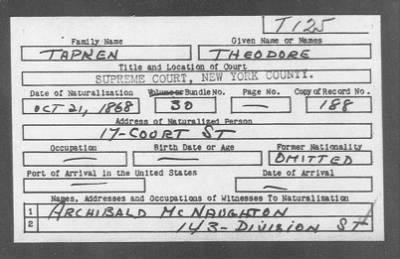 T125
Family Name Given Name or Names
TAPKEN THEODORE
Title and Location of Court
SUPREME COURT, NEW YORK COUNTY.
Date of Naturalization Volume or Bundle No. Page No. Copy of Record No.
OCT 21, 1868 30 — 188
Address of Naturalized Person
17-COURT ST
Occupation Birth Date or Age Former Nationality
— — OMITTED
Port of Arrival in the United States Date of Arrival
— —
Names, Addresses and Occupations of Witnesses To Naturalization
1 ARCHIBALD MCNAUGHTON
2 143-DIVISION ST